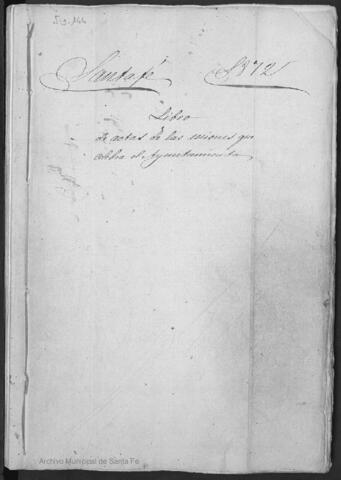 Santafé 1872
Libro
de actas de las sesiones que
celebra el Ayuntamiento
Archivo Municipal de Santa Fe